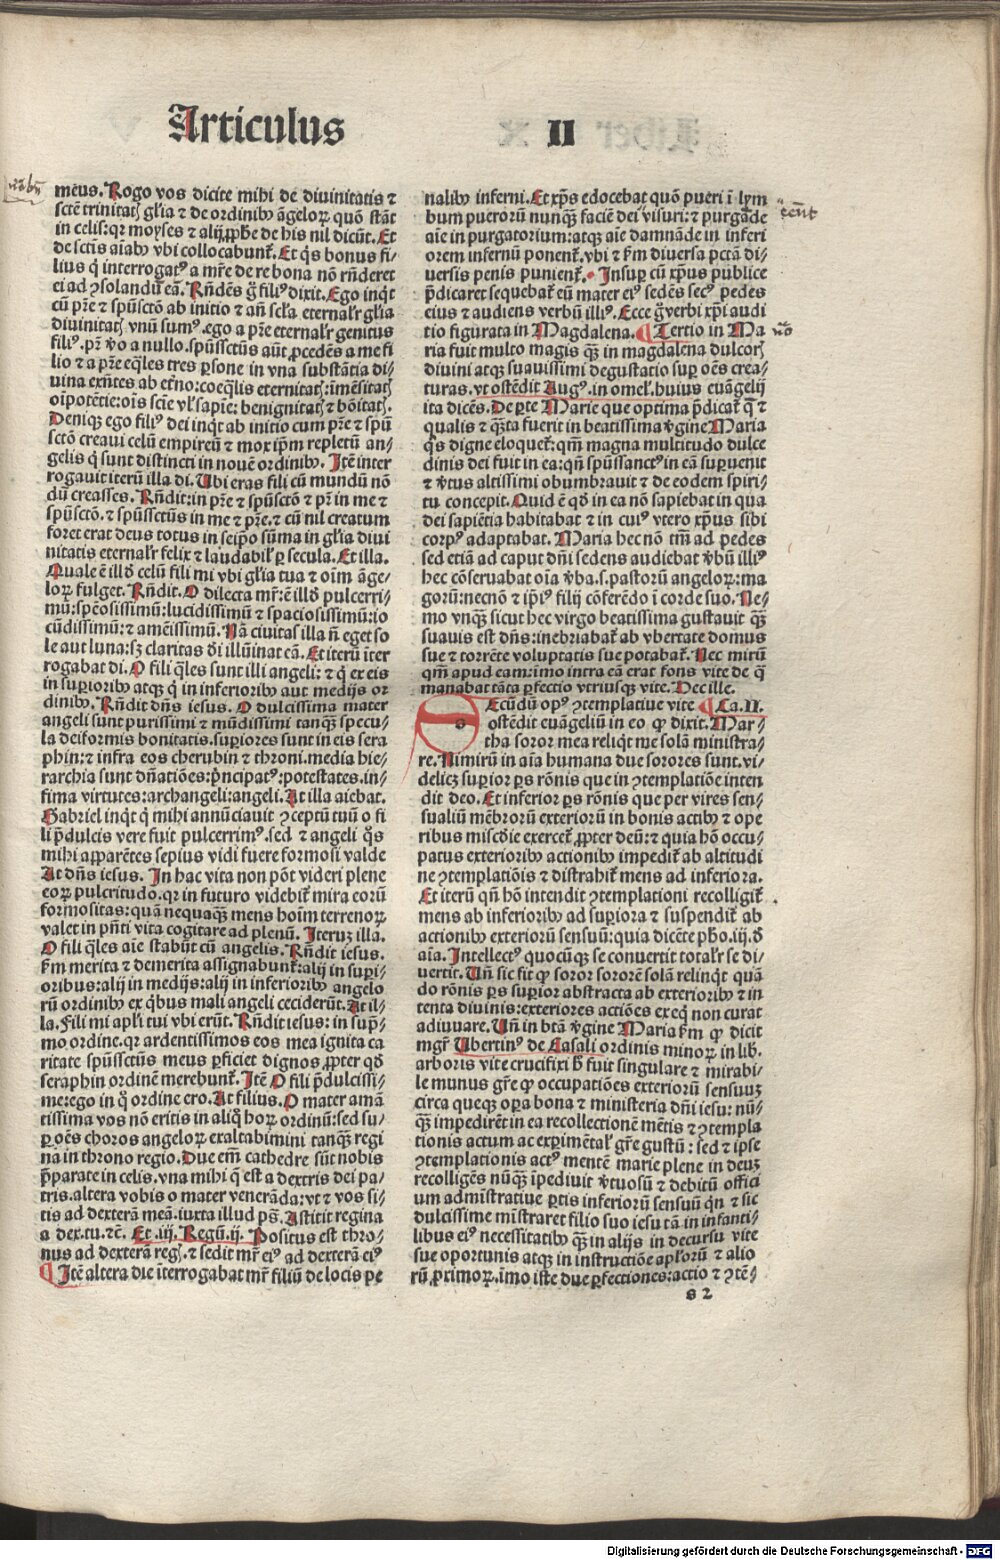 Articulus II
meus. Rogo vos dicite mihi de diuinitatis ⁊
sct̃e trinitatꝭ gl̃ia ⁊ de ordinibꝰ ãgeloꝝ quõ stãt
in celis: qr moyses ⁊ alij ꝓph̃e de his nil dicũt. Et
de sctĩs aĩabꝰ vbi collocabunt̃. Et q̃s bonus fi⸗
lius q̃ interrogatꝰ a mr̃e de re bona nõ rñderet
ei ad ꝯsolandũ eã. Rñdẽs g̃ filiꝰ dixit. Ego inq̃t
cũ pr̃e ⁊ spũsctõ ab initio ⁊ añ scl̃a eternal̃r gl̃ia
diuinitatꝭ vnũ sumꝰ. ego a pr̃e eternal̃r genitus
filiꝰ. pr̃ v̾o a nullo. spũssctũs aũt ꝓcedẽs a me fi
lio ⁊ a pr̃e eq̃les tres ꝑsone in vna substãtia di⸗
uina exñtes ab et̾no: coeq̃lis eternitatꝭ: ĩmẽsitatꝭ
oĩpotẽtie: oĩs scĩe vl̃ sapiẽ: benignitatꝭ ⁊ bõitatꝭ.
Deniqꝫ ego filiꝰ dei inq̃t ab initio cum pr̃e ⁊ spũ
sctõ creaui celũ empireũ ⁊ mox ip̃m repletũ an⸗
gelis q̃ sunt distincti in nouẽ ordinibꝰ. Itẽ inter
rogauit iterũ illa di. Ubi eras fili cũ mundũ nõ
dũ creasses. Rñdit: in pr̃e ⁊ spũsctõ ⁊ pr̃ in me ⁊
spũsctõ. ⁊ spũssctũs in me ⁊ pr̃e. ⁊ cũ nil creatum
foret erat deus totus in seip̃o sũma in gl̃ia diui
nitatis eternal̃r felix ⁊ laudabil̃ ꝑ secula. Et illa.
Quale ẽ illd̾ celũ fili mi vbi gl̃ia tua ⁊ oĩm ãge⸗
loꝝ fulget. Rñdit. O dilecta mr̃: ẽ illd̾ pulcerri⸗
mũ: spẽosissimũ: lucidissimũ ⁊ spaciosissimũ: io
cũdissimũ: ⁊ amẽissimũ. Nã ciuitas illa ñ eget so
le aut luna: sꝫ claritas d̾i illũinat eã. Et iterũ ĩter
rogabat di. O fili q̃les sunt illi angeli: ⁊ q̃ ex eis
in suꝑioribꝰ atqꝫ q̃ in inferioribꝰ aut medijs or
dinibꝰ. Rñdit dñs iesus. O dulcissima mater
angeli sunt purissimi ⁊ mũdissimi tanqꝫ specu⸗
la deiformis bonitatis. suꝑiores sunt in eis sera
phin: ⁊ infra eos cherubin ⁊ throni. media hie⸗
rarchia sunt dñatiões: p̃ncipatꝰ: potestates. in⸗
fima virtutes: archangeli: angeli. At illa aiebat.
Gabriel inq̃t q̃ mihi annũciauit ꝯceptũ tuũ o fi
li p̃dulcis vere fuit pulcerrimꝰ. sed ⁊ angeli q̃s
mihi apparẽtes sepius vidi fuere formosi valde
At dñs iesus. In hac vita non põt videri plene
eoꝝ pulcritudo. qr in futuro videbit̃ mira eorũ
formositas: quã nequaqꝫ mens hoĩm terrenoꝝ
valet in p̃nti vita cogitare ad plenũ. Iteruꝫ illa.
O fili q̃les aĩe stabũt cũ angelis. Rñdit iesus.
Fm merita ⁊ demerita assignabunt̃: alij in suꝑi⸗
oribus: alij in medijs: alij in inferioribꝰ angelo
rũ ordinibꝰ ex q̃bus mali angeli ceciderũt. At il⸗
la. Fili mi apl̃i tui vbi erũt. Rñdit iesus: in sup̃⸗
mo ordine. qr ardentissimos eos mea ignita ca
ritate spũssctũs meus ꝑficiet dignos ꝓpter qd̾
seraphin ordinẽ merebunt̃. Itẽ O fili p̃dulcissi⸗
me: ego in q̃ ordine ero. At filius. O mater amã
tissima vos nõ eritis in aliq̃ hoꝝ ordinũ: sed su⸗
ꝑ oẽs choros angeloꝝ exaltabimini tanqꝫ regi
na in throno regio. Due em̃ cathedre sũt nobis
p̃parate in celis. vna mihi q̃ est a dextris dei pa⸗
tris. altera vobis o mater venerãda: vt ⁊ vos si⸗
tis ad dexterã meã. iuxta illud pš. Astitit regina
a dex. tu. ⁊c̃. Et .iij. Regũ. ij. Positus est thro⸗
nus ad dexterã regꝭ. ⁊ sedit mr̃ eiꝰ ad dexterã eiꝰ
¶ Itẽ altera die ĩterrogabat mr̃ filiũ de locis pe
nalibꝰ inferni. Et xp̃s edocebat quõ pueri ĩ lym
bum puerorũ nunqꝫ faciẽ dei visuri: ⁊ purgãde
aĩe in purgatorium: atqꝫ aĩe damnãde in inferi
orem infernũ ponent̃. vbi ⁊ fm diuersa pctã di⸗
uersis penis punient̃. Insuꝑ cũ xp̃us publice
p̃dicaret sequebat̃ eũ mater eiꝰ sedẽs secꝰ pedes
eius ⁊ audiens verbũ illiꝰ. Ecce g̃ verbi xp̃i audi
tio figurata in Magdalena. ¶ Tertio in Ma
ria fuit multo magis qꝫ in magdalena dulcorꝭ
diuini atqꝫ suauissimi degustatio suꝑ oẽs crea⸗
turas. vt ostẽdit Augꝰ. in omel̃. huius euãgelij
ita dicẽs. De ꝑte Marie que optima p̃dicat̃ q̃ ⁊
qualis ⁊ q̃ta fuerit in beatissima v̾gine Maria
q̃s digne eloquet̃: qm̃ magna multitudo dulce
dinis dei fuit in ea: qñ spũssanctꝰ in eã suꝑuenit
⁊ v̾tus altissimi obumbrauit ⁊ de eodem spiri⸗
tu concepit. Quid ẽ qd̾ in ea nõ sapiebat in qua
dei sapiẽtia habitabat ⁊ in cuiꝰ vtero xp̃us sibi
corpꝰ adaptabat. Maria hec nõ tm̃ ad pedes
sed etiã ad caput dñi sedens audiebat v̾bũ illiꝰ
hec cõseruabat oĩa v̾ba .s. pastorũ angeloꝝ: ma
gorũ: necnõ ⁊ ip̃iꝰ filij cõferẽdo ĩ corde suo. Ne⸗
mo vnqꝫ sicut hec virgo beatissima gustauit qꝫ
suauis est dñs: inebriabat̃ ab vbertate domus
sue ⁊ torrẽte voluptatis sue potabat̃. Nec mirũ
qm̃ apud eam: ĩmo intra eã erat fons vite de q̃
manabat tãta ꝑfectio vtriusqꝫ vite. Hec ille.
Secũdũ opꝰ ꝯtemplatiue vite ¶ Ca. II.
ostẽdit euãgeliũ in eo ꝙ dixit. Mar⸗
tha soror mea reliq̃t me solã ministra⸗
re. Nimirũ in aĩa humana due sorores sunt. vi⸗
delicꝫ suꝑior ꝑs rõnis que in ꝯtemplatiõe inten
dit deo. Et inferior ꝑs rõnis que per vires sen⸗
sualiũ mẽbrorũ exteriorũ in bonis actibꝰ ⁊ ope
ribus miscd̾ie exercet̃ ꝓpter deũ: ⁊ quia hõ occu⸗
patus exterioribꝰ actionibꝰ impedit̃ ab altitudi
ne ꝯtemplatiõis ⁊ distrahit̃ mens ad inferiora.
Et iterũ qñ hõ intendit ꝯtemplationi recolligit̃
mens ab inferioribꝰ ad suꝑiora ⁊ suspendit̃ ab
actionibꝰ exteriorũ sensuũ: quia dicẽte pho. iij. d̾
aĩa. Intellectꝰ quocũqꝫ se conuertit total̃r se di⸗
uertit. Uñ sic fit ꝙ soror sororẽ solã relinq̃t quã
do rõnis ꝑs suꝑior abstracta ab exterioribꝰ ⁊ in
tenta diuinis: exteriores actiões exeq̃ non curat
adiuuare. Uñ in btã v̾gine Maria fm ꝙ dicit
mgr̃ Ubertinꝰ de Casali ordinis minoꝝ in lib.
arboris vite crucifixi h̾ fuit singulare ⁊ mirabi⸗
le munus gr̃e ꝙ occupatiões exteriorũ sensuuꝫ
circa queqꝫ oꝑa bona ⁊ ministeria dñi iesu: nũ⸗
qꝫ impedirẽt in ea recollectionẽ mẽtis ⁊ ꝯtempla
tionis actum ac exꝑimẽtal̃ gr̃e gustũ: sed ⁊ ipse
ꝯtemplationis actꝰ mentẽ marie plene in deuꝫ
recolligẽs nũqꝫ ĩpediuit v̾tuosũ ⁊ debitũ offici
um admĩstratiue ꝑtis inferiorũ sensuũ q̃n ⁊ sic
dulcissime mĩstraret filio suo iesu tã in infanti⸗
libus eiꝰ necessitatibꝰ qꝫ in alijs in decursu vite
sue oportunis atqꝫ in instructiõe apl̃orũ ⁊ alio
rũ ꝓximoꝝ. ĩmo iste due ꝑfectiones: actio ⁊ ꝯtẽ⸗
s 2
Digitalisierung gefördert durch die Deutsche Forschungsgemeinschaft - DFG